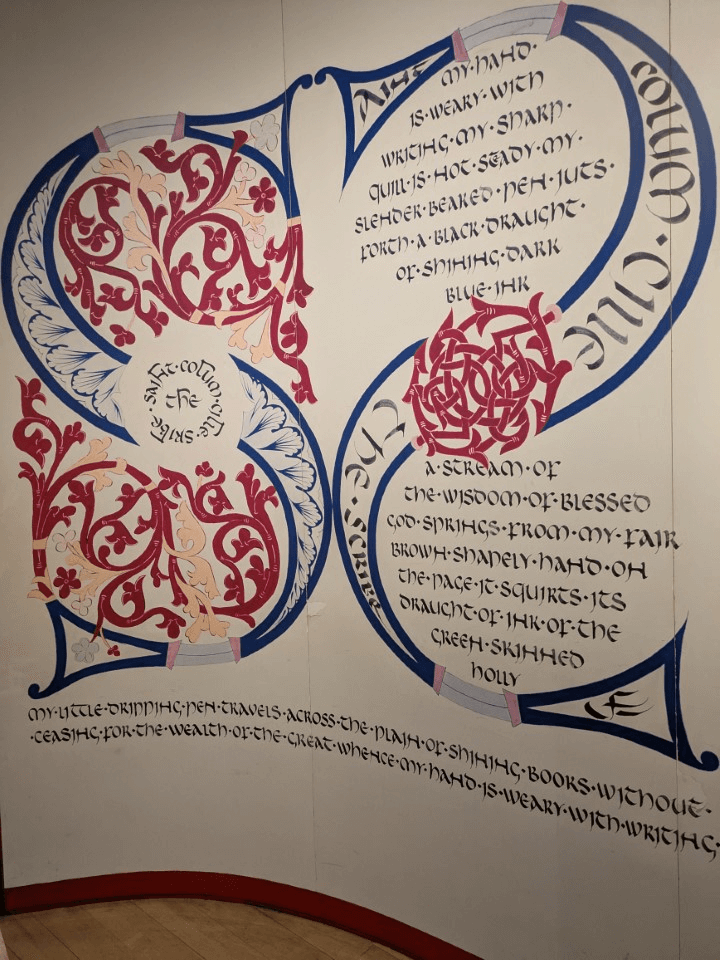 SAINT·COLUM·CILLE
the
SAINT
COLUM·CILLE
the·SCRIBE
MY·HAND·
IS·WEARY·WITH
WRITING·MY·SHARP·
QUILL·IS·NOT·STEADY·MY·
SLENDER·BEAKED·PEN·JUTS·
FORTH·A·BLACK·DRAUGHT·
OF·SHINING·DARK
BLUE·INK
A·STREAM·OF
THE·WISDOM·OF·BLESSED
GOD·SPRINGS·FROM·MY·FAIR
BROWN·SHAPELY·HAND·ON
THE·PAGE·IT·SQUIRTS·ITS
DRAUGHT·OF·INK·OF·THE
GREEN·SKINNED
HOLLY
MY·LITTLE·DRIPPING·PEN·TRAVELS·ACROSS·THE·PLAIN·OF·SHINING·BOOKS·WITHOUT·
·CEASING·FOR·THE·WEALTH·OF·THE·GREAT·WHENCE·MY·HAND·IS·WEARY·WITH·WRITING·